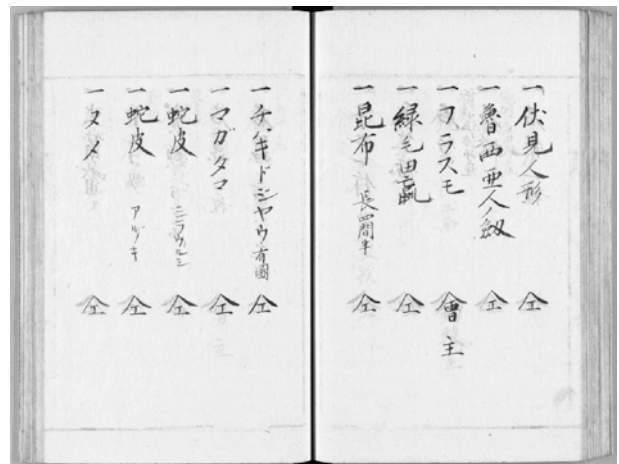 一 伏見人形 仝
一 魯西亜人ノ劔 仝
一 フラスモ 會主
一 緑毛田蠃 仝
一 昆布 長四間半 仝
一 チヽキドジヤウ 有圖 仝
一 マガタマ 仝
一 蛇皮 仝
一 蛇皮 アヅキ 仝
一 タメ 仝